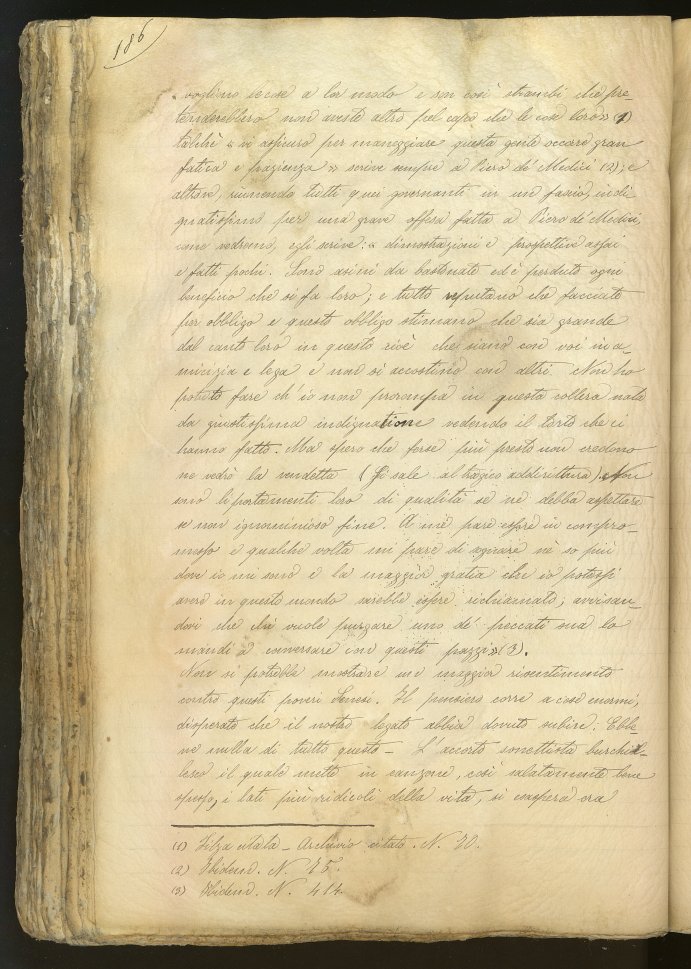 186
vogliono le cose a lor modo e son così strambi che pre-
tenderebbero non aveste altro pel capo che le cose loro» (1)
talchè « vi assicuro per maneggiare questa gente occore gran
fatica e pazienza » scrive sempre a Piero de' Medici (2); e
altrove, riunendo tutti quei governanti in un fascio, indi-
gnatissimo per una grave offesa fatta a Piero de' Medici,
come vedremo, egli scrive: « dimostrazioni e prospettive assai
e fatti pochi. Sono asini da bastonate ed è perduto ogni
beneficio che si fa loro; e tutto reputano che facciate
per obbligo e questo obbligo stimano che sia grande
dal canto loro in questo cioè che siano con voi in a-
micizia e lega e non si accostino con altri. Non ho
potuto fare ch'io non prorompa in questa collera nata
da giustissima indignatione vedendo il torto che ci
hanno fatto. Ma spero che forse più presto non credono
ne vedrò la vendetta (si sale al tragico addirittura). Non
sono li portamenti loro di qualità se ne debba aspettare
se non ignominioso fine. A me pare essere in compro-
messo e qualche volta mi pare di sognare nè so più
dove io mi sono e la maggior gratia che io potessi
avere in questo mondo sarebbe essere richiamato; avvisan-
dovi che chi vuole purgare uno de' peccati sua lo
mandi a conversare con questi pazzi» (3).
Non si potrebbe mostrare un maggior risentimento
contro questi poveri Senesi. Il pensiero corre a cose enormi,
disperate che il nostro legato abbia dovuto subire. Ebbe-
ne nulla di tutto questo – L'accorto sonettista burchiel-
lesco il quale mette in canzone, così salatamente bene
spesso, i lati più ridicoli della vita, si esaspera ora
(1) Filza citata – Archivio citato. N. 70.
(2) Ibidem. N. 75.
(3) Ibidem. N. 414.